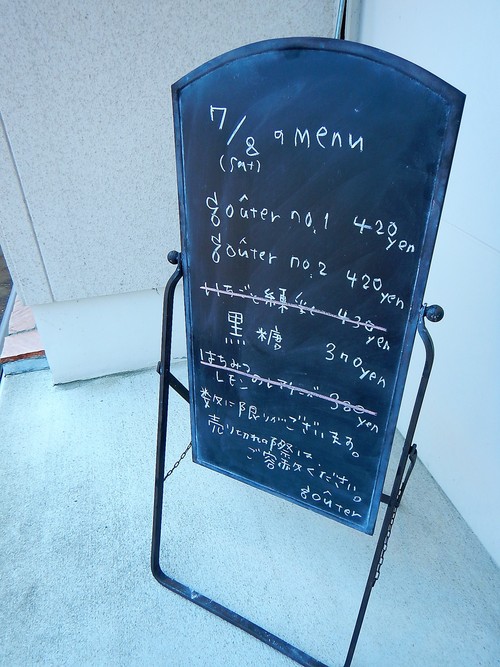 7/8 のmenu
(Sat)
goûter no.1 420yen
goûter no.2 420yen
いちごと練乳 430yen
黒糖 300yen
はちみつ
レモンの 380yen
数に限りがございます。
売り切れの際は
ご容赦ください。
goûter